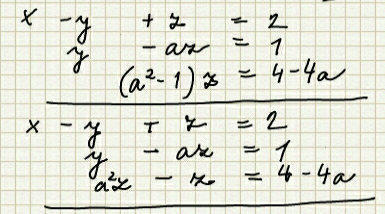 x - y + z = 2
y - az = 1
(a² - 1) z = 4 - 4a
x - y + z = 2
y - az = 1
a²z - z = 4 - 4a